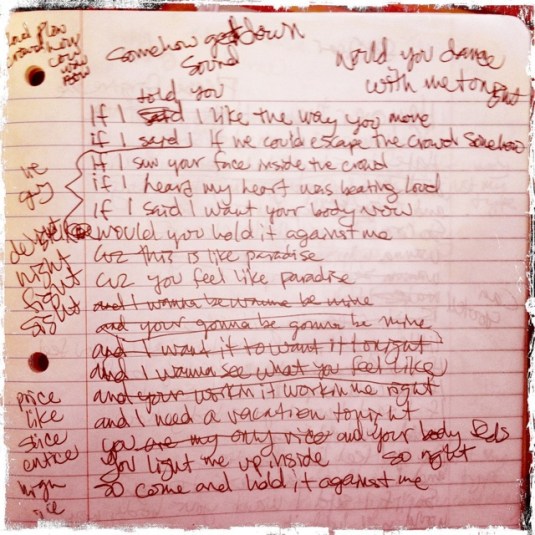 loud Plow
crowd how
cow
wow
now
somehow get down
sound
would you dance
with me tonight
told you
If I said I like the way you move
if I said If we could escape the crowd somehow
If I saw your face inside the crowd
if I heard my heart was beating loud
If I said I want your body now
would you hold it against me
cuz this is like paradise
cuz you feel like paradise
and I wanna be wanna be mine
and your gonna be gonna be mine
and I want it to want it tonight
and I wanna see what you feel like
and your workin it workin me right
and I need a vacation tonight
you are my only vice and your body feels
you light me up inside so right
so come and hold it against me
me
guy
delight
night
fight
sight
price
like
since
entice
high
ice